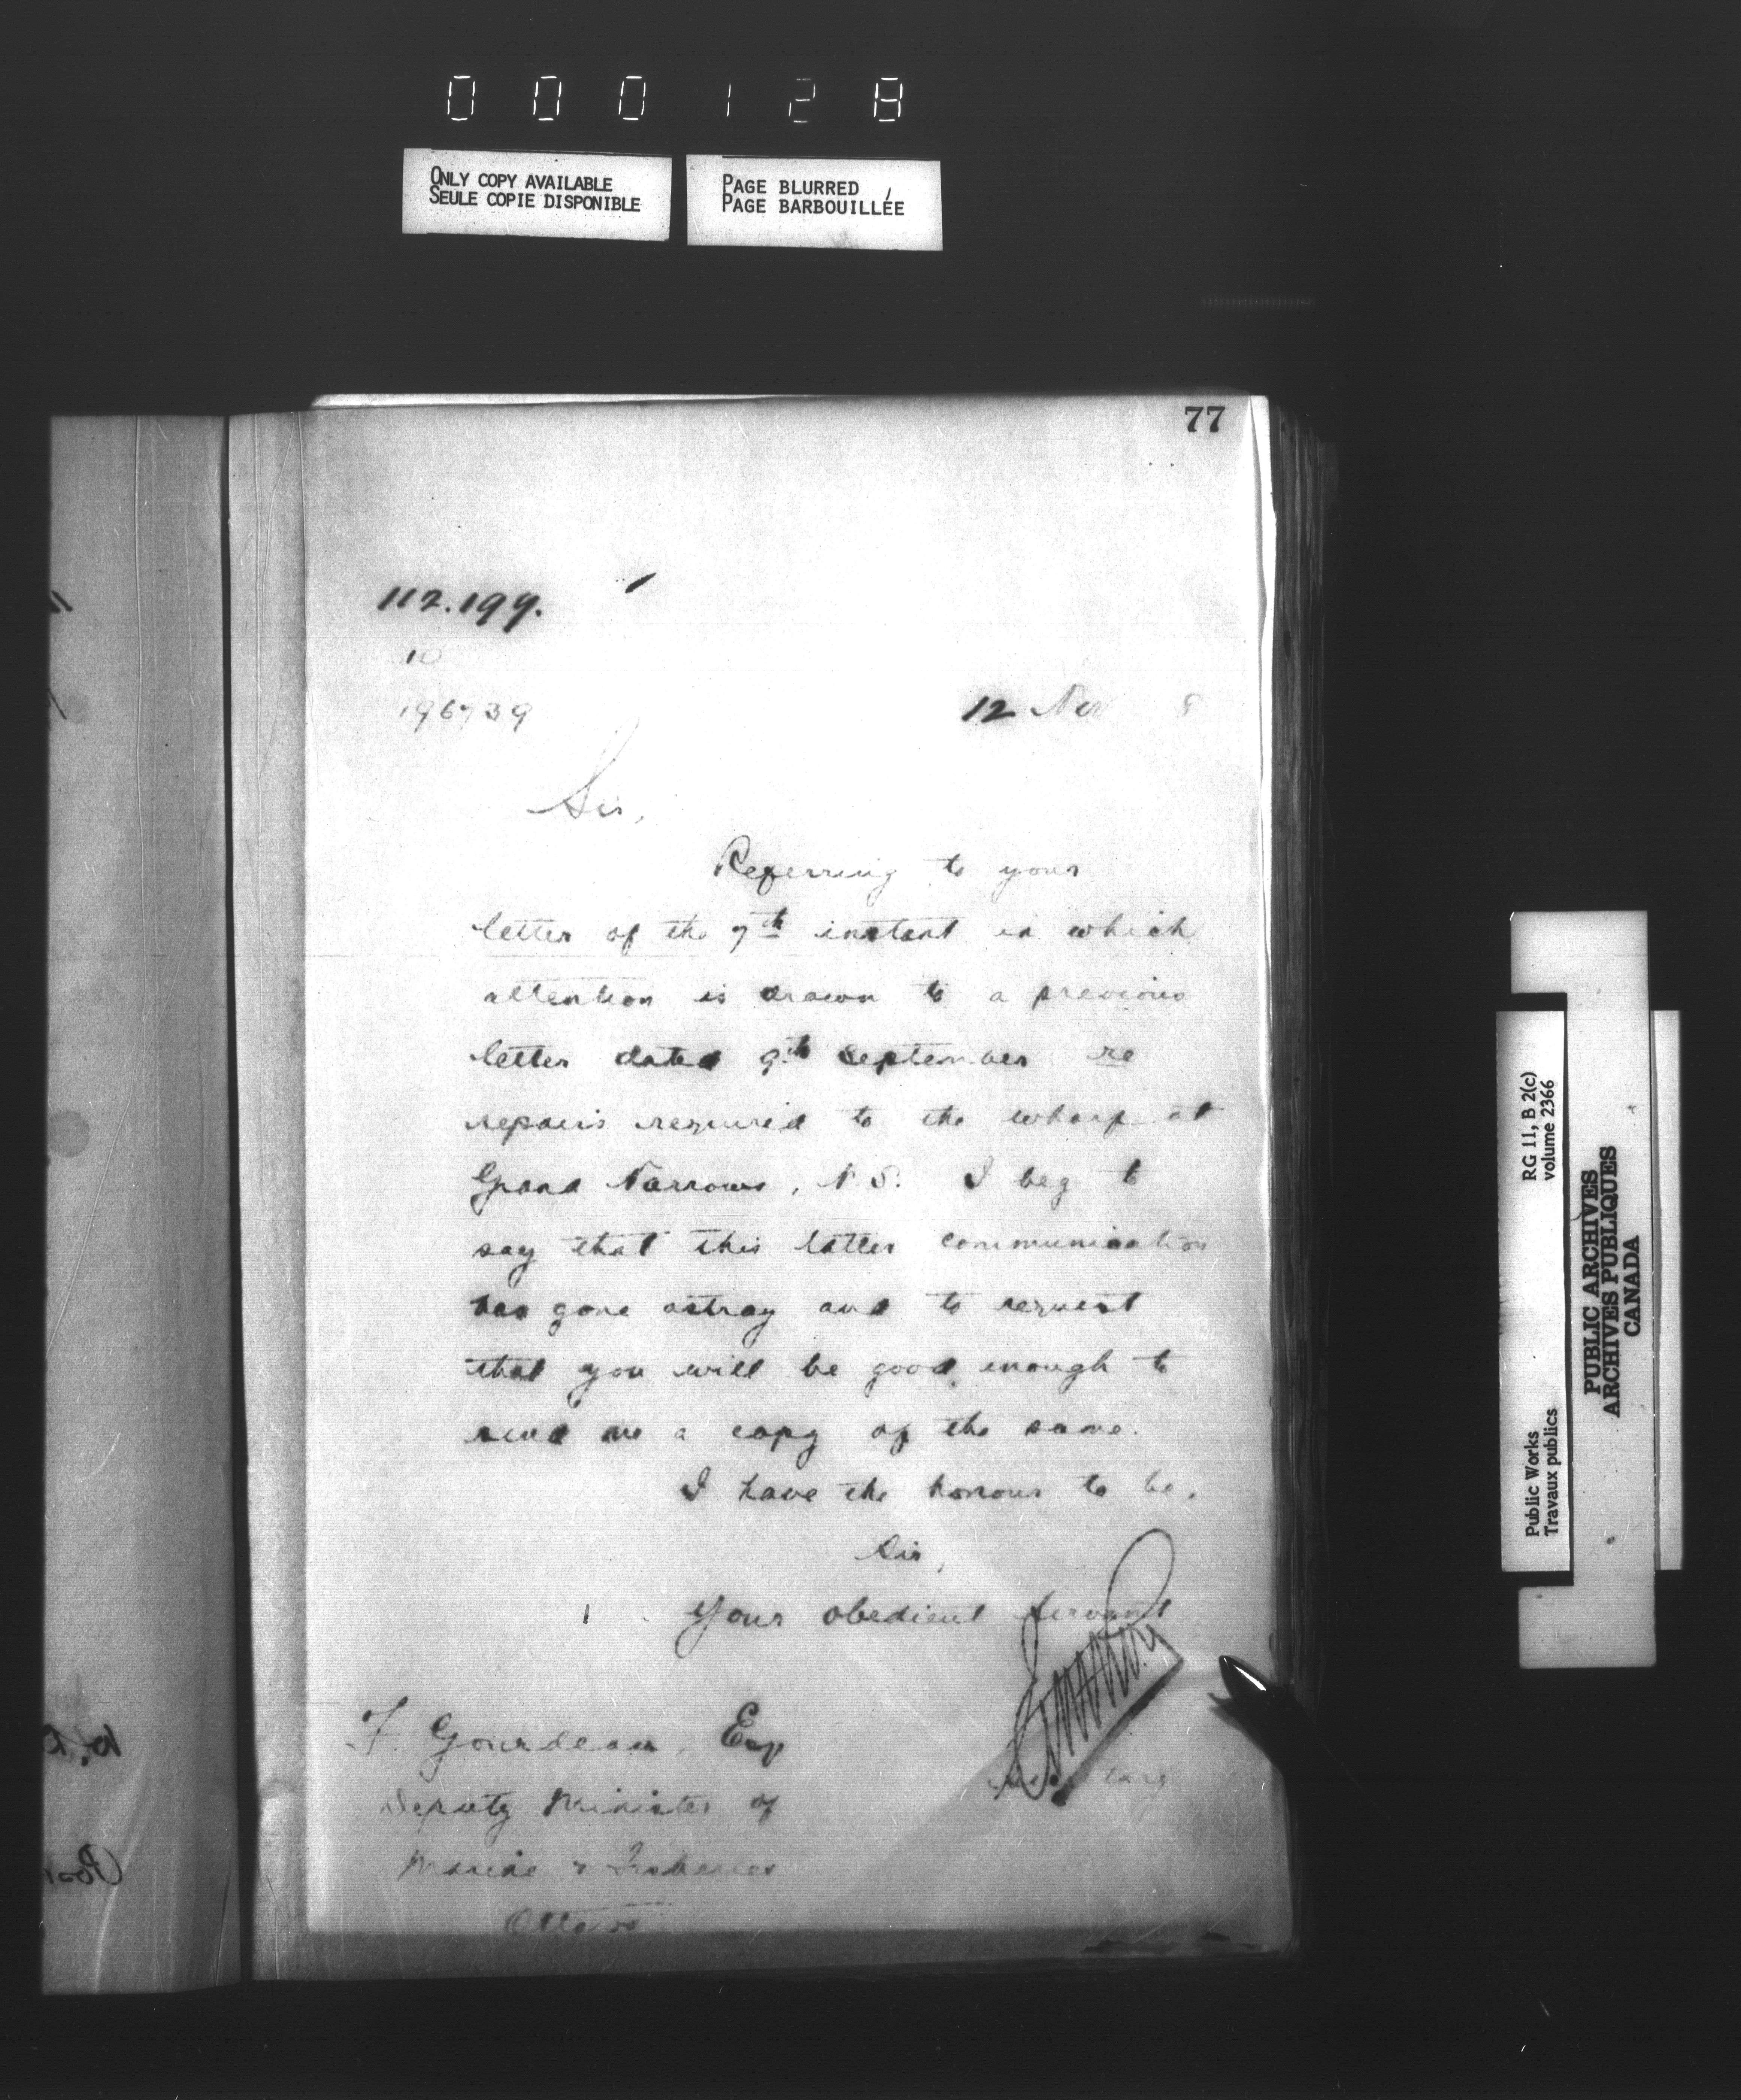 000128
ONLY COPY AVAILABLE
SEULE COPIE DISPONIBLE
PAGE BLURRED
PAGE BARBOUILLÉE
77
112.199.
10
196739
12 Nov 8
Sir,
Referring to your
letter of the 7th instant in which
attention is drawn to a previous
letter dated 9th September re
repairs required to the wharf at
Grand Narrows, N.S. I beg to
say that this latter communication
has gone astray and to request
that you will be good enough to
send me a copy of the same.
I have the honour to be,
Sir,
Your obedient servant
Secretary
F. Gourdeau, Esq
Deputy Minister of
Marine & Fisheries
Ottawa
RG 11, B 2(c)
volume 2366
Public Works
Travaux publics
PUBLIC ARCHIVES
ARCHIVES PUBLIQUES
CANADA